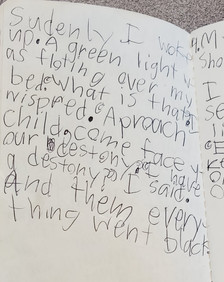 Sudenly I woke
up. A green light w
as floting over my
bed. what is that I
wispred. Aproach
child, come face y
our destony. I have
a destony? I said.
And them every
thing went black